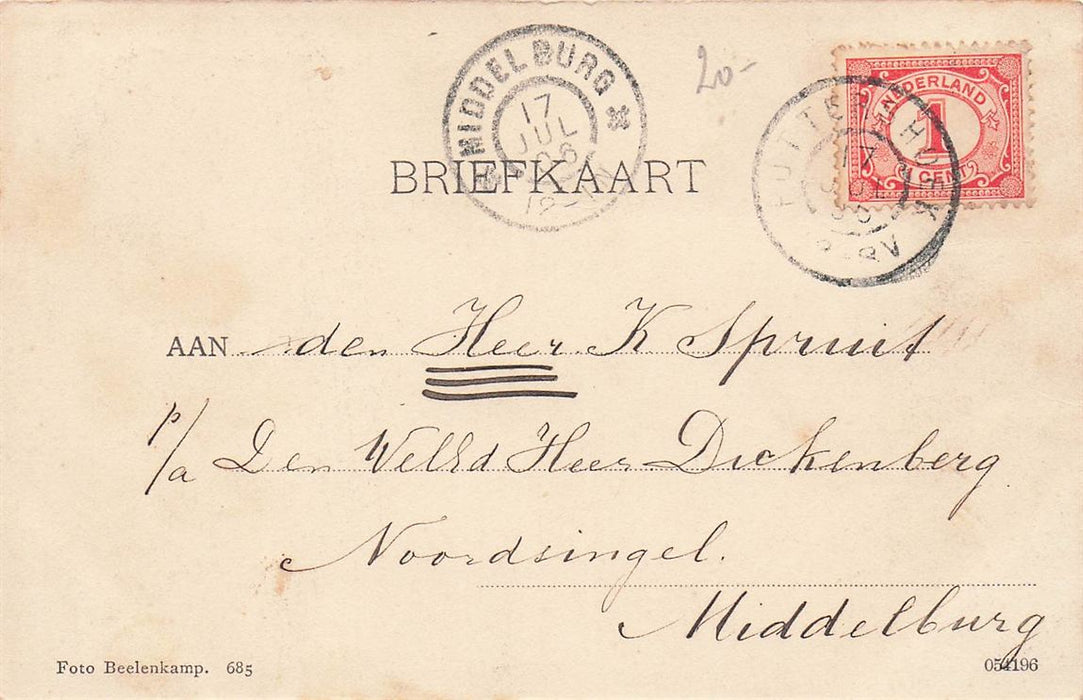 MIDDELBURG
17
JUL
12-1
20-
NEDERLAND
1
CENT
17
JUL
BRIEFKAART
AAN den Heer K Spruit
p/a Den WelEd Heer Dickenberg
Noordsingel.
Middelburg
Foto Beelenkamp. 685
054196